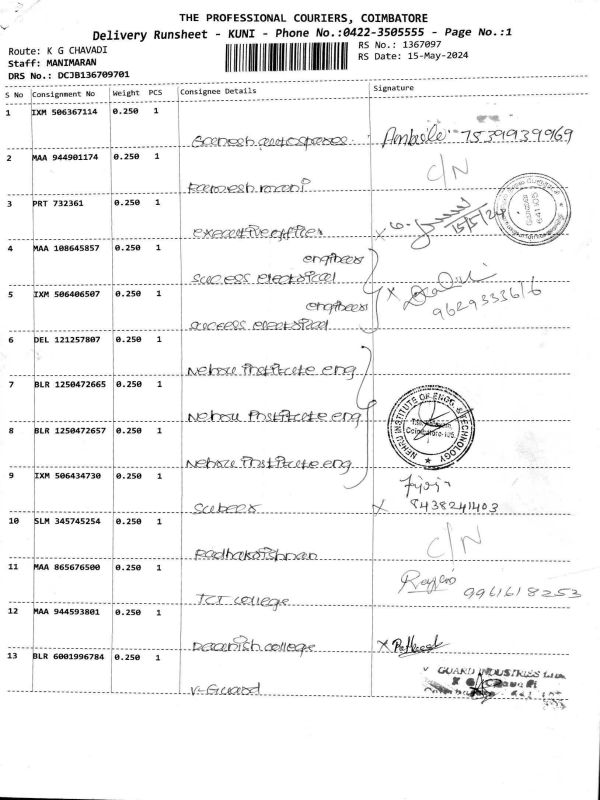 THE PROFESSIONAL COURIERS, COIMBATORE
Delivery Runsheet - KUNI - Phone No.:0422-3505555 - Page No.:1
Route: K G CHAVADI
RS No.: 1367097
Staff: MANIMARAN
RS Date: 15-May-2024
DRS No.: DCJB136709701
S No Consignment No Weight PCS Consignee Details Signature
1 IXM 506367114 0.250 1
Ganesh autospares 7539939969
2 MAA 944901174 0.250 1
Rameshmani C/N
3 PRT 732361 0.250 1
executive officer 15/5/24
4 MAA 108645857 0.250 1
engineer
sucess electrical
5 IXM 506406507 0.250 1
engineer
sucess electrical 9629333616
6 DEL 121257807 0.250 1
Nehru institute eng
7 BLR 1250472665 0.250 1
Nehru institute eng
NEHRU INSTITUTE OF ENGG. & TECHNOLOGY
Coimbatore-105
8 BLR 1250472657 0.250 1
Nehru institute eng
9 IXM 506434730 0.250 1
Subeer 8438241403
10 SLM 345745254 0.250 1
Radhakrishnan C/N
11 MAA 865676500 0.250 1
TCT college 9961618253
12 MAA 944593801 0.250 1
Daanish college
13 BLR 6001996784 0.250 1
V-Guard
V GUARD INDUSTRIES Ltd